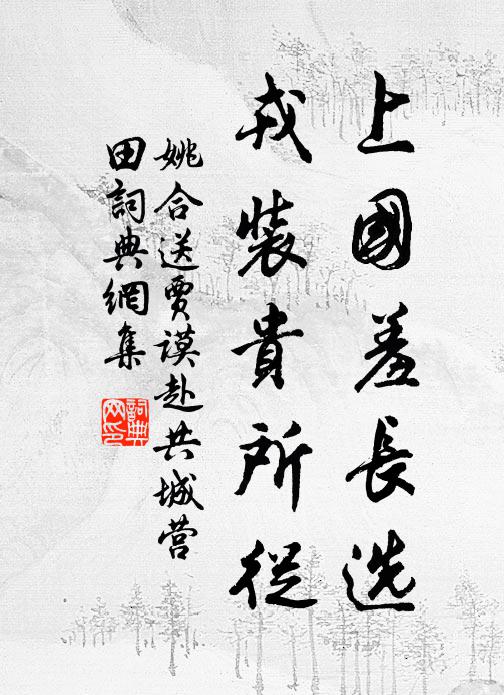 上國羞長选
戎裝貴所從
姚合送賈謨赴共城营
田詞典網集
詞典
网印